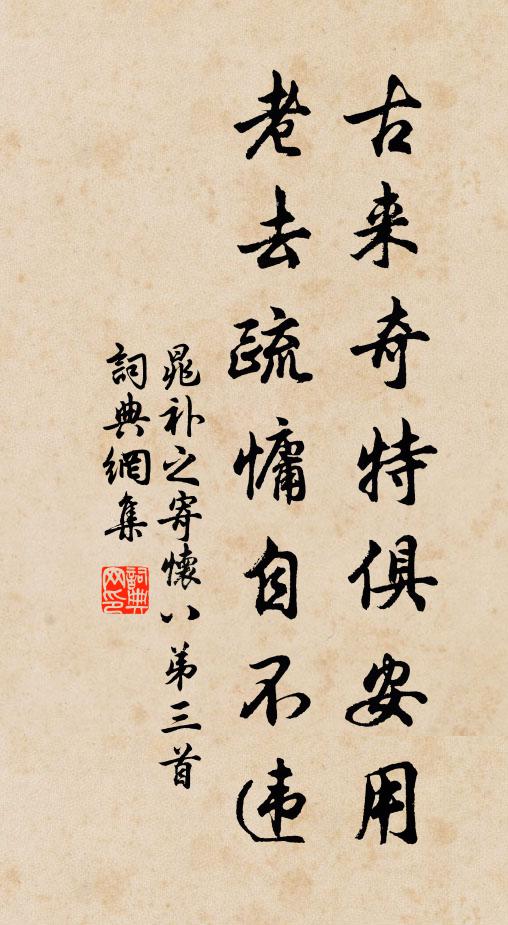 古来奇特俱安用
老去疏慵自不违
晁补之寄懷八弟三首
詞典網集
詞典网印